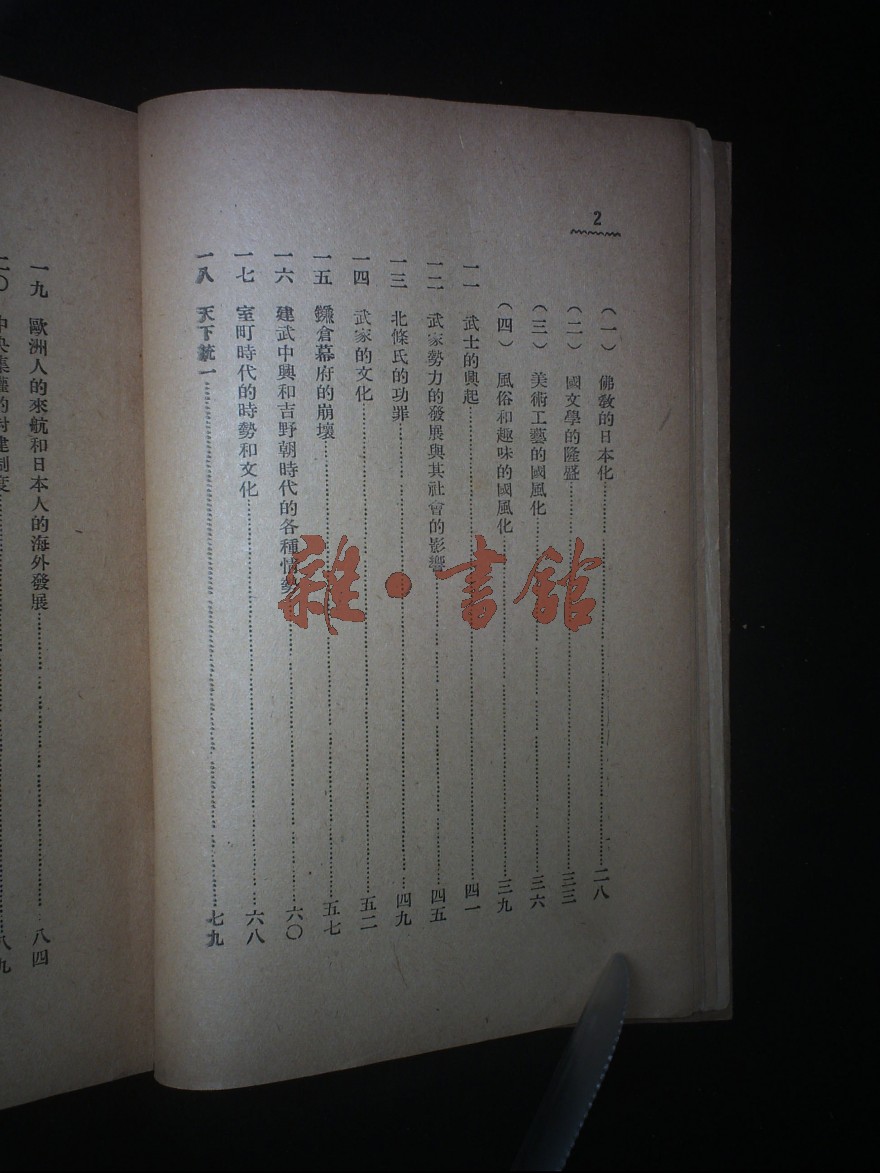 2
（一） 佛敎的日本化……二八
（二） 國文學的隆盛……三三
（三） 美術工藝的國風化……三六
（四） 風俗和趣味的國風化……三九
一一 武士的興起……四一
一二 武家勢力的發展與其社會的影響……四五
一三 北條氏的功罪……四九
一四 武家的文化……五二
一五 鎌倉幕府的崩壞……五七
一六 建武中興和吉野朝時代的各種情勢……六〇
一七 室町時代的時勢和文化……六八
一八 天下統一……七九
一九 歐洲人的來航和日本人的海外發展……八四
二〇 中央集權的封建制度……八九
雜·書館